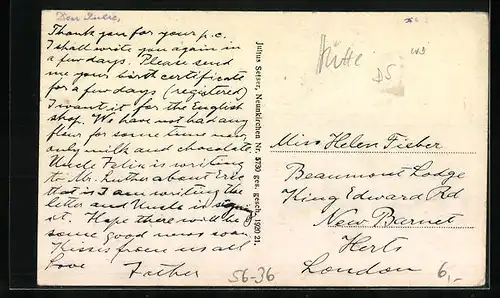 Thank you for your p.c.
I shall write you again in
a few days. Please send
me your birth certificate
for a few days (registered)
I want it for the English
shop. We have not had any
flour for some time now,
only milk and chocolate.
Uncle Felix is writing
to Mr. Luther about Eric
that is I am writing the
letter and Uncle is signing
it. Hope there will be
some good news soon.
Kisses from us all
Love Father
Julius Setser, Neunkirchen Nr. 5730 ges. gesch. 1920 21.
Hütte
D5
Miss Helen Fieber
Beaumont Lodge
King Edward Rd
New Barnet
Herts
London
56-36
6,-